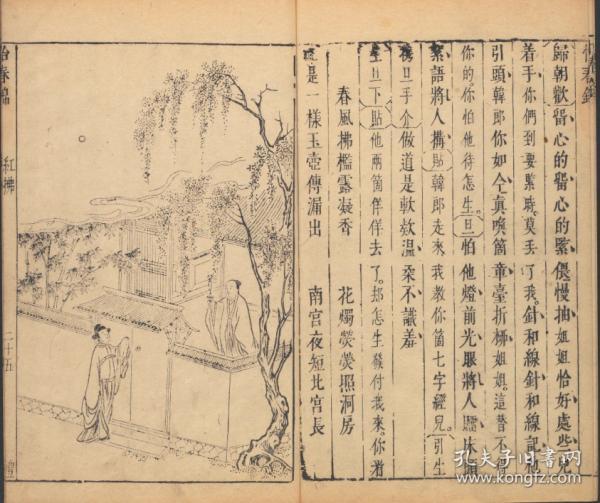 歸朝歡㽞心的㽞心的緊儇慢抽姐姐恰好處些兒
着手你們到要緊時莫丢了我針和線針和線記他
引頭韓郎你如今真喚箇章臺折柳姐姐這替不得
你的你怕他待怎生旦怕他燈前光眼將人瞷床頭
絮語將人搆貼韓郎走來我教你箇七字經兒引生
携旦手介做道是軟款溫柔不識羞
生旦下貼他兩箇佯佯去了却怎生發付我來你看
春風拂檻露凝香　花燭熒熒照洞房
是一樣玉壺傳漏出　南宮夜短北宮長
怡春錦
紅拂
二十五
孔夫子旧书网